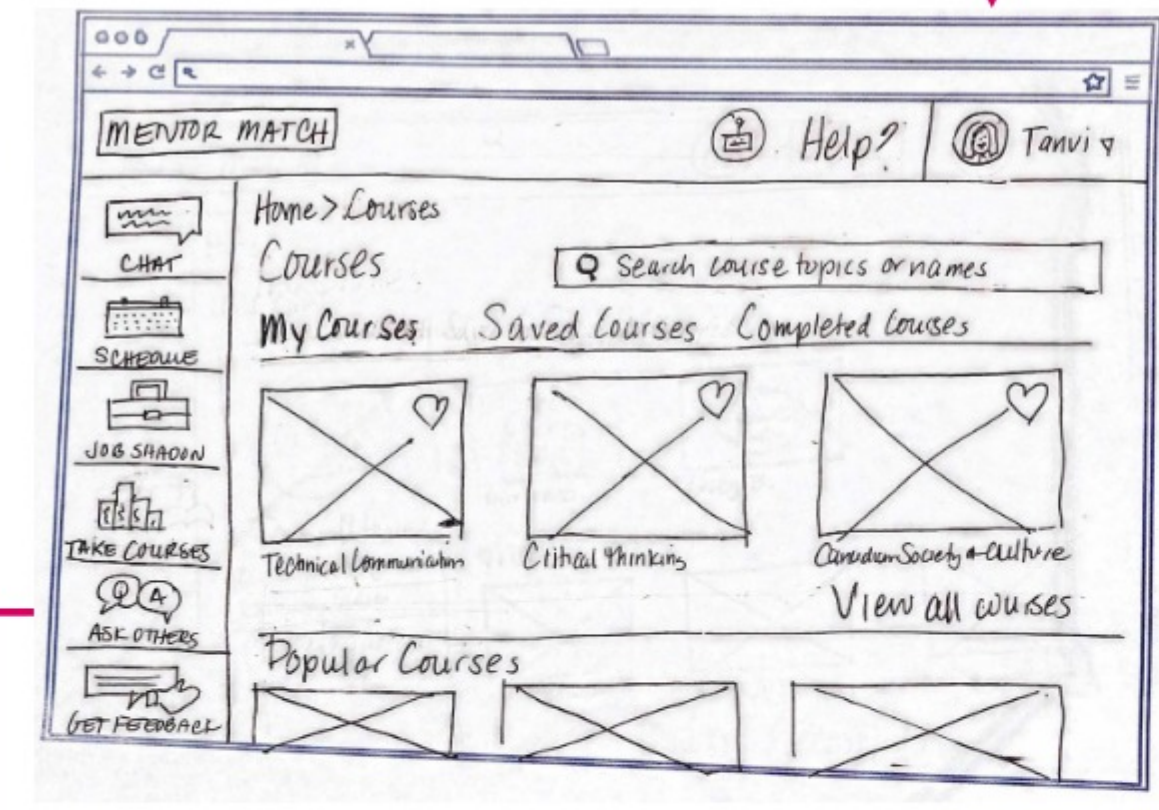 MENTOR MATCH
Help?
Tanvi
CHAT
SCHEDULE
JOB SHADOW
TAKE COURSES
Q A
ASK OTHERS
GET FEEDBACK
Home > Courses
Courses
Search course topics or names
My Courses Saved Courses Completed Courses
Technical Communication
Critical Thinking
Canadian Society & Culture
View all courses
Popular Courses